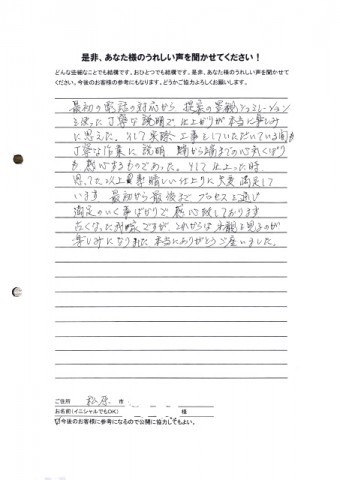 是非、あなた様のうれしい声を聞かせてください！
どんな些細なことでも結構です。おひとつでも結構です。是非、あなた様のうれしい声を聞かせて
ください。今後のお客様の参考にもなります。どうかご協力よろしくお願いします。
最初の電話の対応から 提案の
を使った丁寧な説明で 仕上がりが本当に楽しみ
に思えた。そして実際 工事をしていただいている間も
丁寧な作業に説明 端から端までの心気くばり
も感心するものであった。そして仕上った時、
思ってた以上 素晴しい仕上りに大変満足して
います 最初から最後までプロセスを通じ
満足のいく事ばかりで感心致しております
古くなった ですが、これからは を見るのが
楽しみになりました 本当にありがとうございました。
ご住所 松原 市
お名前(イニシャルでもOK) 様
☑今後のお客様に参考になるので公開に協力してもよい。